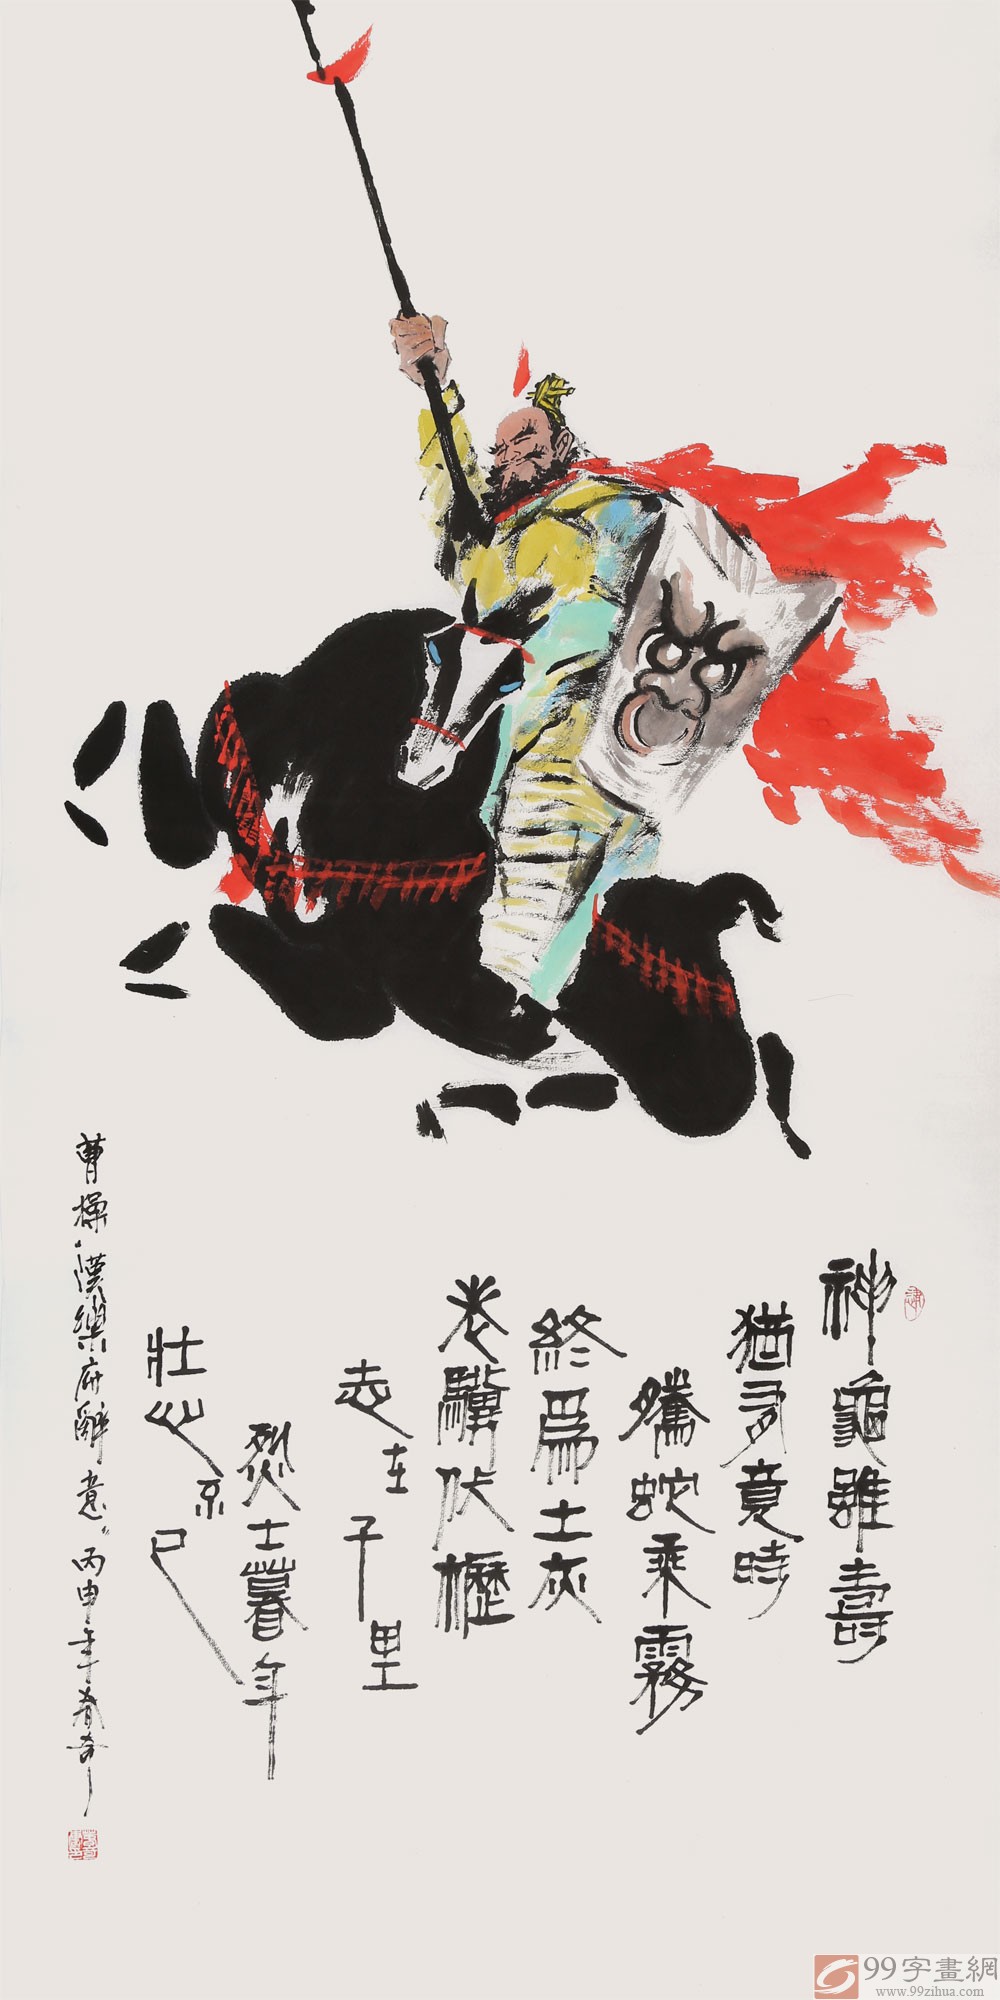 神龜雖壽
猶有竟時
騰蛇乘霧
終爲土灰
老驥伏櫪
志在千里
烈士暮年
壯心不已
曹操漢樂府辭意丙申年春奇
99字畫網
www.99zihua.com